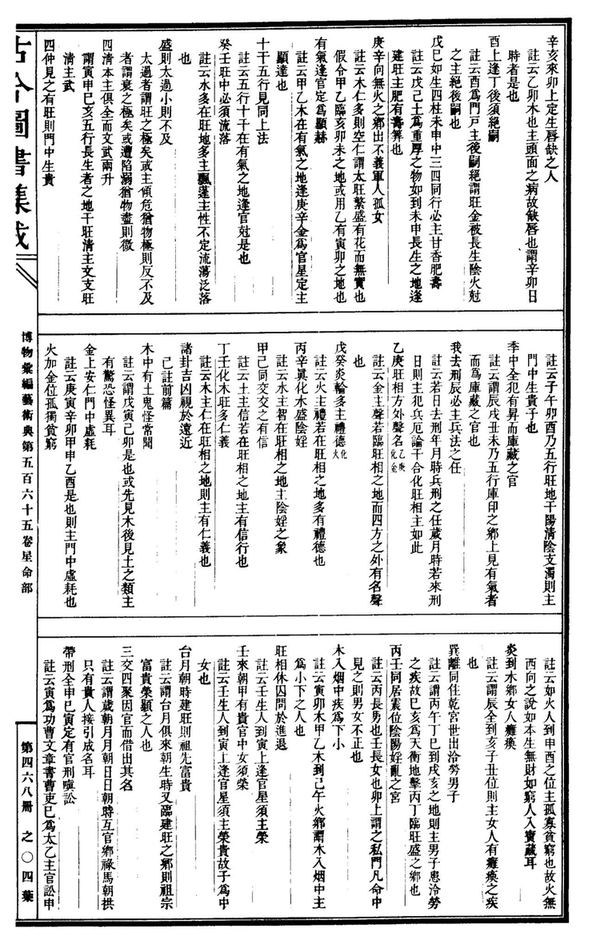 辛亥來卯上定生唇缺之人
註云乙卯木也主頭面之病故缺唇也謂辛卯日
時者是也
酉上逢丁後須絕嗣
註云酉爲門戸主後嗣絕謂旺金被長生陰火尅
之主絕後嗣也
戊巳如生四柱未申中三四同行必主甘香肥壽
註云戊己土爲重厚之物如到未申長生之地逢
建旺主肥有壽算也
庚辛向無火之鄉出不義軍人孤女
註云木仁多則空仁謂太旺繁盛有花而無實也
假令甲乙臨亥卯未之地或用乙有寅卯之地也
有氣逢官定爲顯赫
註云甲乙木在有氣之地逢庚辛金爲官星定主
顯達也
十干五行見同上法
註云五行十干在有氣之地逢官尅是也
癸壬旺中必須流落
註云水多在旺地多主飄蓬主性不定流蕩泛落
盛則太過小則不及
太過者謂旺之極矣或主傾危猶物極則反不及
者謂衰之極矣或遭陷溺猶物盡則微
四清本主俱全而文武兩升
謂寅申巳亥五行長生者之地干旺清主文支旺
清主武
四仲見之有旺則門中生貴
註云子午卯酉乃五行旺地干陽清陰支濁則主
門中生貴子也
季中全犯有昇而庫藏之官
註云謂辰戌丑未乃五行庫印之鄉上見有氣者
而爲庫藏之官也
我去刑辰必主兵法之任
註云若日去刑年月時兵刑之任歲月時若來刑
日則主犯兵厄論干合化旺相主如此
乙庚旺相方外聲名乙庚化金
註云金主聲若臨旺相之地而四方之外有名聲
也
戊癸炎輪多主禮德化火
註云火主禮若在旺相之地多有禮德也
丙辛異化水盛陰婬
註云水主智在旺相之地主陰婬之象
甲己同交交之有信
註云土主信若在旺相之地主有信行也
丁壬化木旺多仁義
註云木主仁在旺相之地則主有仁義也
諸卦吉凶視於遠近
已註前篇
木中有土鬼怪常聞
註云謂戊寅己卯是也或先見木後見土之類主
有驚恐怪異耳
金上安仁門中虛耗
註云庚寅辛卯甲申乙酉是也則主門中虛耗也
火加金位孤獨貧窮
註云如火人到申酉之位主孤寡貧窮也故火無
西向之說如本生無財如窮人入寶藏耳
炎到水鄉女人癱瘓
註云謂辰全到亥子丑位則主女人有癱瘓之疾
也
巽離同住乾宮世出洽勞男子
註云謂丙午丁巳到戌亥之地則主男子患洽勞
之疾故巳亥爲天衡地擊丙丁臨旺盛之鄉也
丙壬同居震位陰陽婬亂之宮
註云丙長男也壬長女也卯上謂之私門凡命中
見之則男女不正也
木入烟中疾爲下小
註云寅卯木甲乙木到己午火鄉謂木入烟中主
爲小下之疾
旺相休囚問於進退
註云壬生人到寅上逢官星須主榮
壬來朝甲有貴官中女須榮
註云壬生人到寅上逢官星須主榮貴故子爲中
女也
台月朝時建旺則祖先富貴
註云謂台月俱來朝生時又臨建旺之鄉則祖宗
富貴榮顯之人也
三交四聚因官而借出其名
註云謂歲朝月月朝日日朝時互官鄉祿馬朝拱
只有貴人接引成名耳
帶刑全申巳寅定有官刑嗔訟
註云寅爲功曹文章書曹吏巳爲太乙主官訟申
古今圖書集成
博物彙編藝術典第五百六十五卷星命部
第四六八冊 之〇四葉